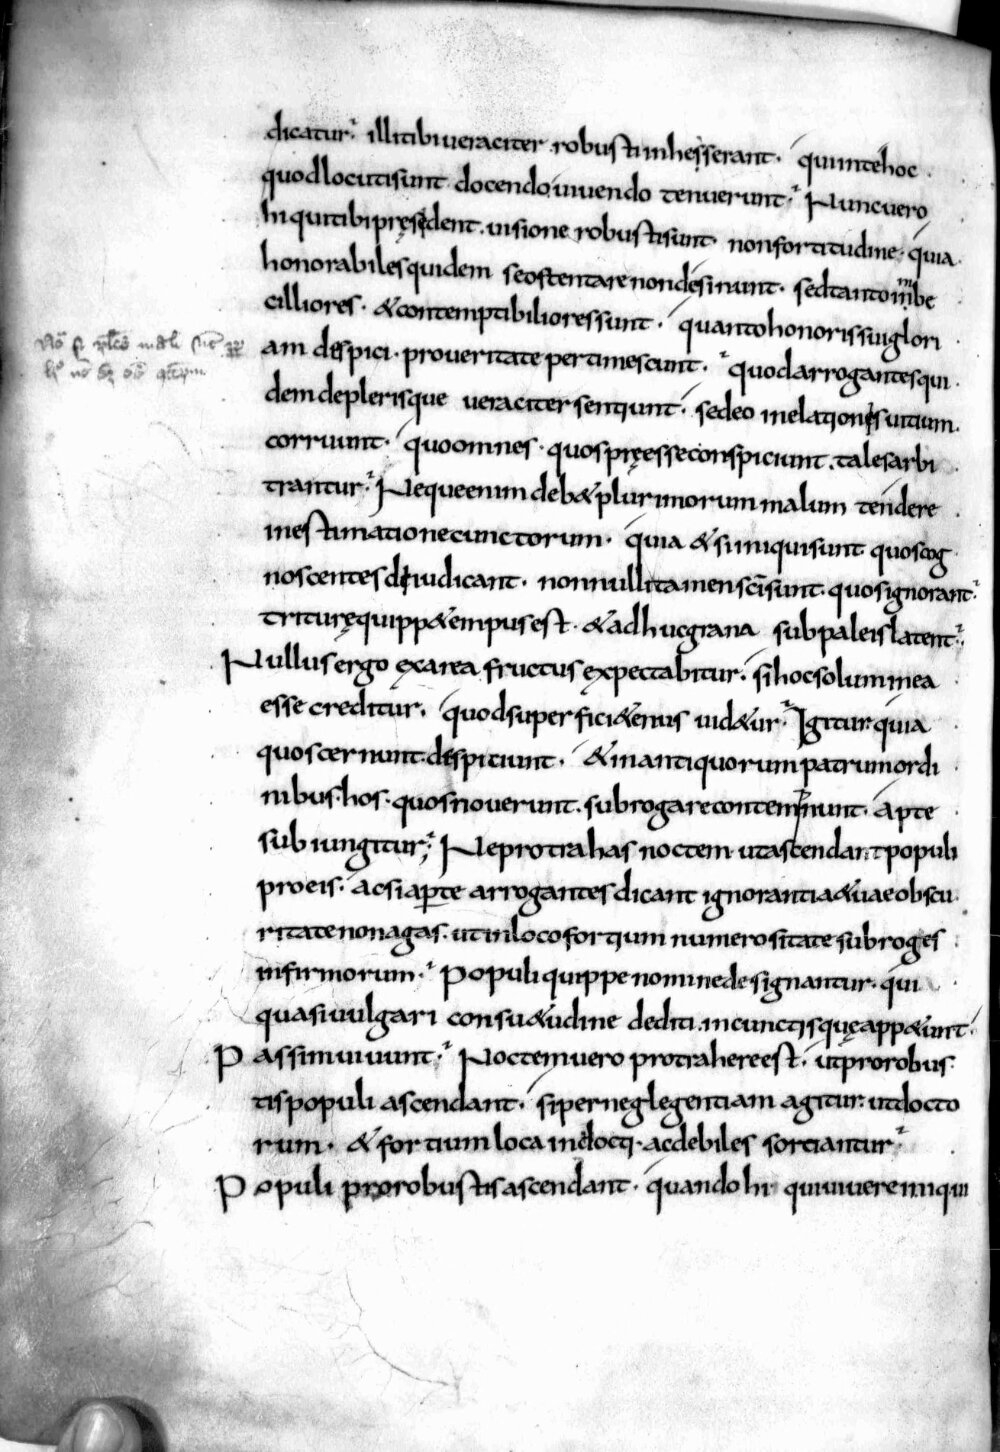 dicatur. illi tibi veraciter robusti inhesserant. qui in te hoc
quod locuti sunt docendo, vivendo tenuerunt. Nunc vero
hi qui tibi pręsident. visione robusti sunt. non fortitudine. quia
honorabiles quidem se ostentare non desinunt. sed tanto imbe
cilliores. & contemptibiliores sunt. quanto honoris sui glori
am despici. pro veritate pertimescunt. quod arrogantes qui
dem de plerisque veraciter sentiunt. sed eo in elationis vitium
corruunt. quo omnes. quos pręesse conspiciunt. tales arbi
trantur. Neque enim deb& plurimorum malum tendere
in estimatione cunctorum. quia & si iniqui sunt quos cog
noscentes diiudicant. nonnulli tamen sc̄i sunt. quos ignorant.
triturę quippe & tempus est. & adhuc grana sub paleis latent.
Nullus ergo ex area fructus expectabitur. si hoc solum in ea
esse creditur. quod superfici&enus vid&ur. Igitur quia
quos cernunt. despiciunt. & in antiquorum patrum ordi
nibus. hos. quos noverunt. subrogare contemnunt. apte
subiungitur; Ne protrahas noctem ut ascendant populi
pro eis. ac si aperte arrogantes dicant ignorantia & vae obscu
ritate non agas. ut in loco fortium numerositate subroges
infirmorum. Populi quippe nomine designantur. qui
quasi vulgari consu&udine dediti. in cunctis quę app&unt.
Passim vivunt. Noctem vero protrahere est. ut pro robus
tis populi ascendant. si per neglegentiam agitur. ut docto
rum. & fortium loca indocti. ac debiles sortiantur.
Populi pro robustis ascendant. quando hi qui vivere iniqui